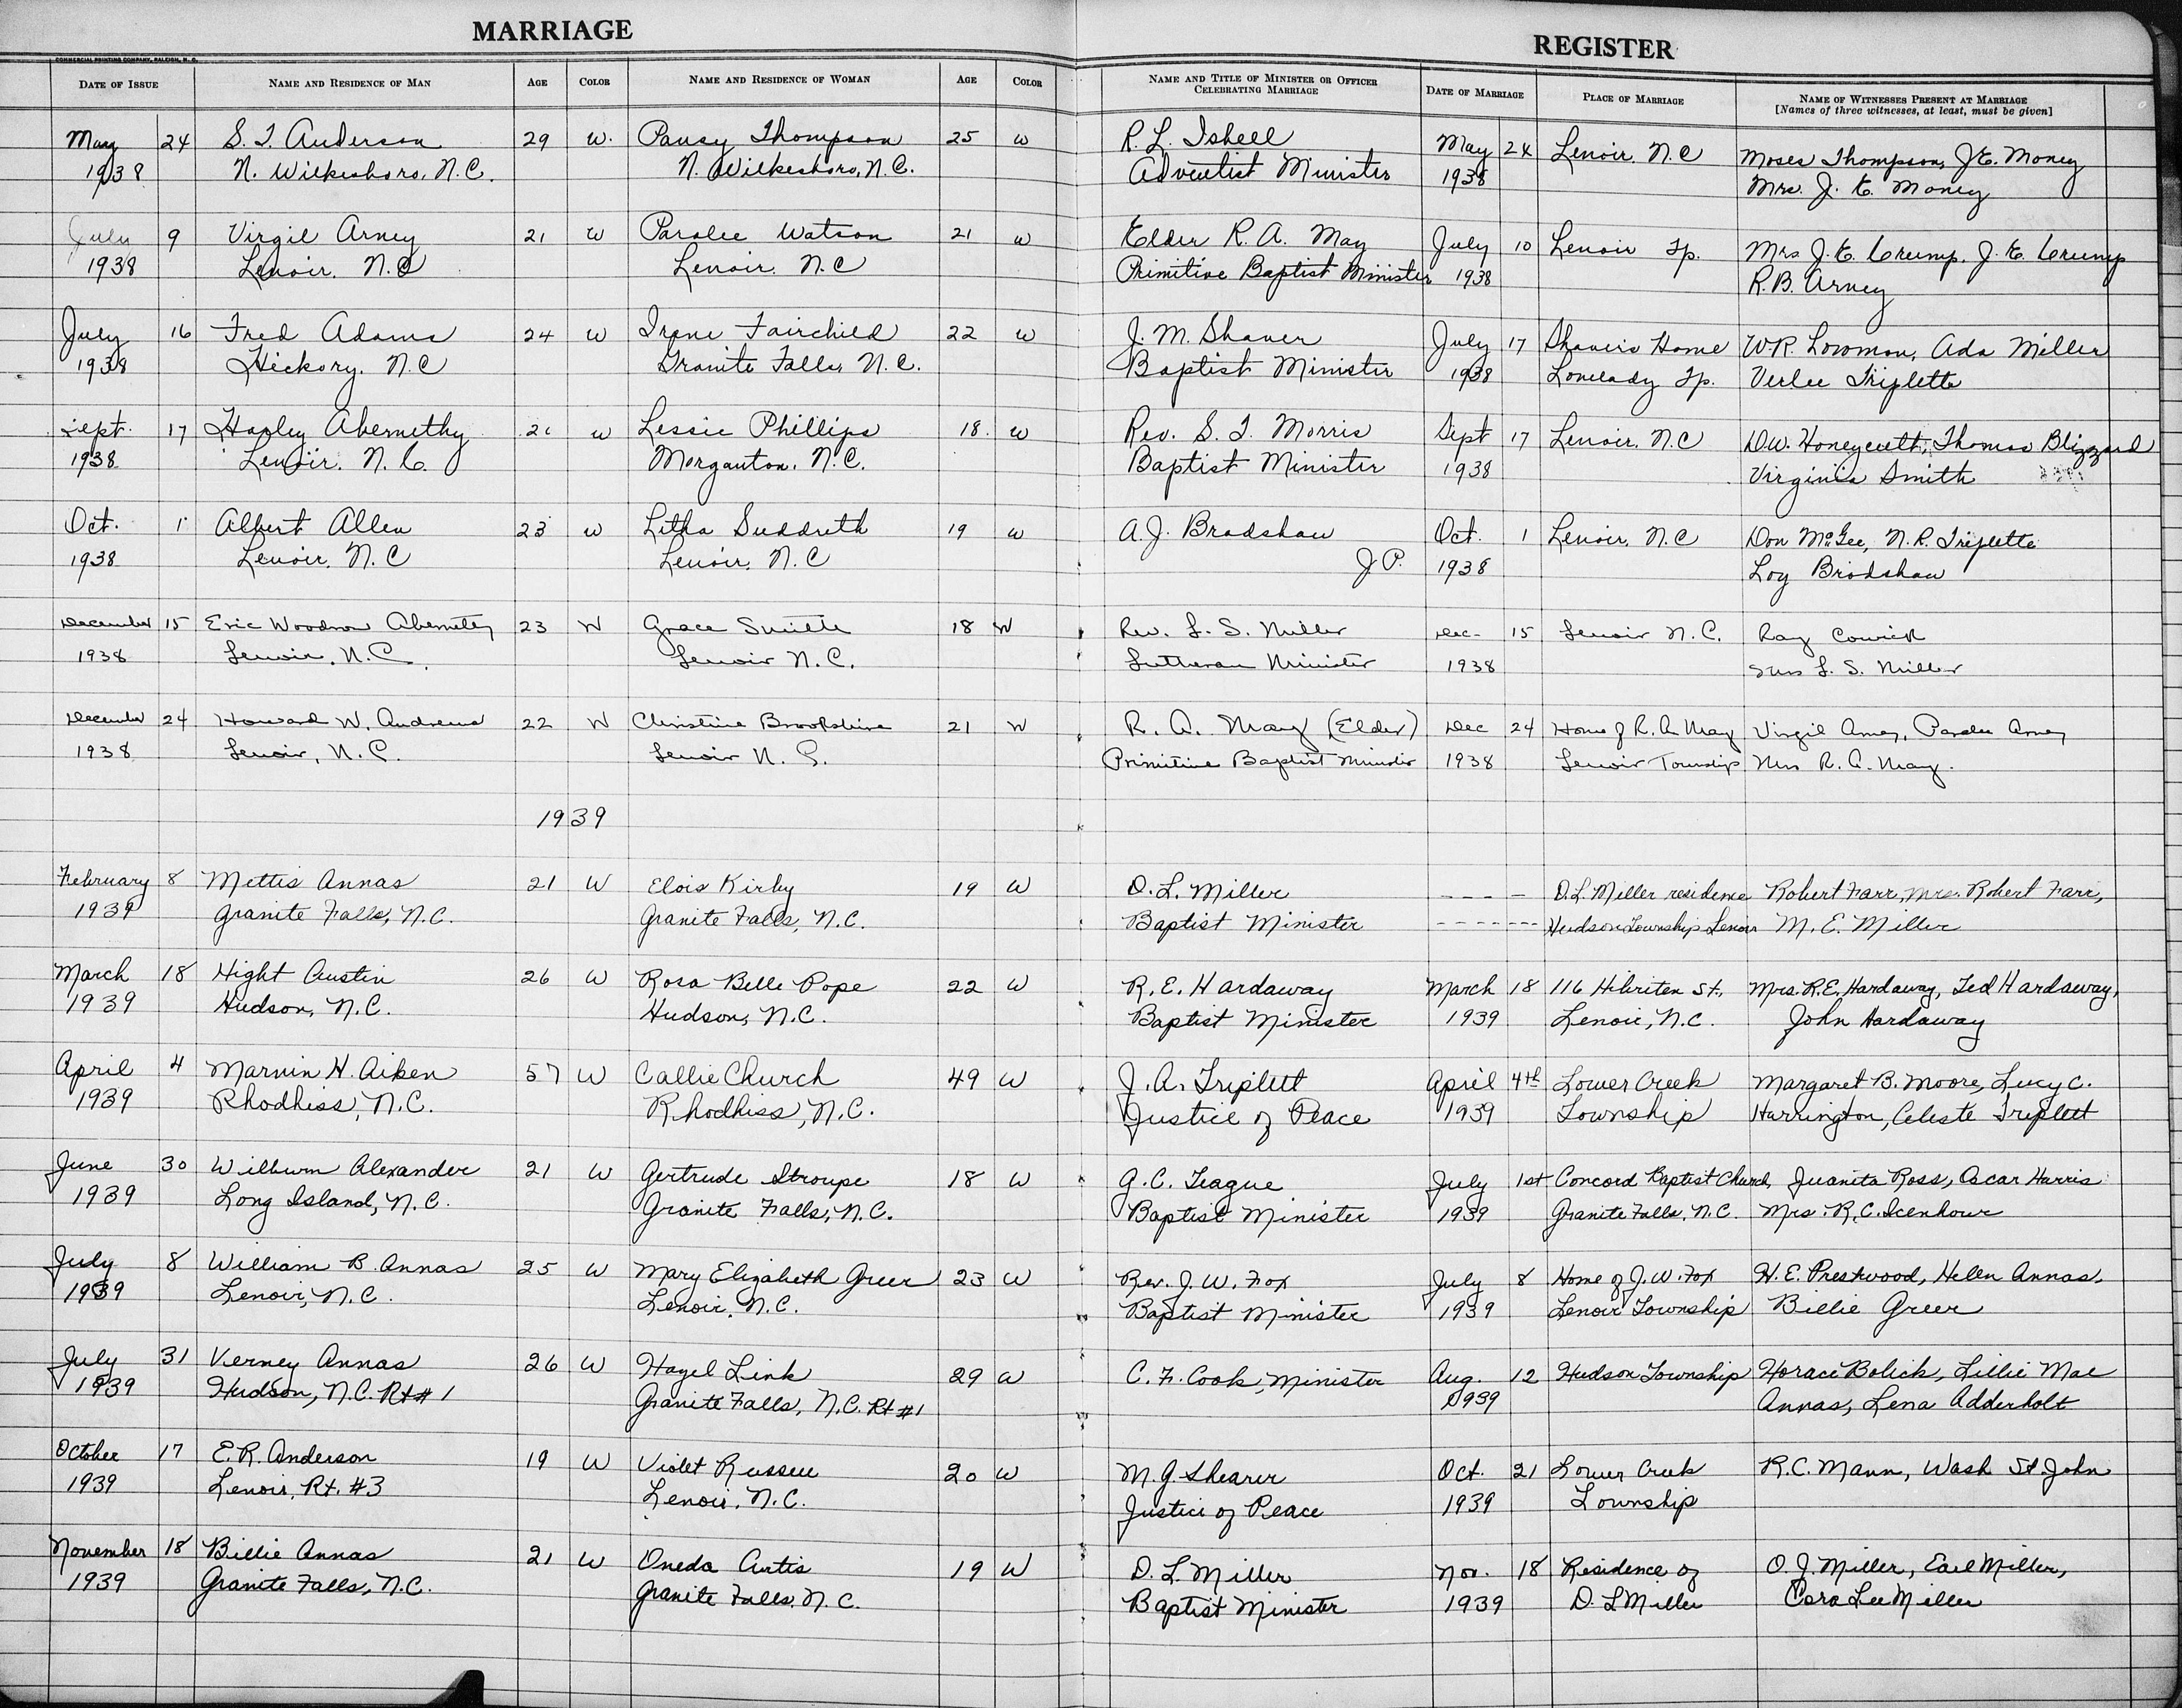 MARRIAGE
REGISTER
COMMERCIAL PRINTING COMPANY, RALEIGH, N. C.
DATE OF ISSUE NAME AND RESIDENCE OF MAN AGE COLOR NAME AND RESIDENCE OF WOMAN AGE COLOR NAME AND TITLE OF MINISTER OR OFFICER CELEBRATING MARRIAGE DATE OF MARRIAGE PLACE OF MARRIAGE NAME OF WITNESSES PRESENT AT MARRIAGE
[Names of three witnesses, at least, must be given]
May 24 S. T. Anderson 29 W. Pansy Thompson 25 W R. L. Isbell May 24 Lenoir, N.C Moses Thompson, J.E. Money
1938 N. Wilkesboro, N.C. N. Wilkesboro, N.C. Adventist Minister 1938 Mrs. J. E. Money
July 9 Virgil Arney 21 W Paralee Watson 21 W Elder R. A. May July 10 Lenoir Tp. Mrs J. E. Crump, J. E. Crump
1938 Lenoir, N.C Lenoir, N.C Primitive Baptist Minister 1938 R. B. Arney
July 16 Fred Adams 24 W Irene Fairchild 22 W J. M. Shaver July 17 Shavers Home W.R. Lowman, Ada Miller
1938 Hickory, N.C Granite Falls, N.C. Baptist Minister 1938 Lovelady Tp. Verlee Triplette
Sept. 17 Harley Abernethy W Lessie Phillips 18 W Rev. S. T. Morris Sept 17 Lenoir, N.C D.W. Honeycutt, Thomas Blizzard
1938 Lenoir, N. C. Morganton, N.C. Baptist Minister 1938 Virginia Smith
Oct. 1 Albert Allen 23 W Letha Suddreth 19 W A. J. Bradshaw Oct. 1 Lenoir, N.C Don McGee, N. R. Triplette
1938 Lenoir, N.C Lenoir, N.C J P. 1938 Loy Bradshaw
December 15 Eric Woodrow Abernethy 23 W Grace Smith 18 W Rev. L. S. Miller Dec- 15 Lenoir N.C. Ray
1938 Lenoir, N.C. Lenoir N.C. Lutheran Minister 1938 Mrs L. S. Miller
December 24 Howard W. Andrews 22 W Christine Brookshire 21 W R. A. May (Elder) Dec 24 Home of R. A. May Virgil Arney, Paralee Arney
1938 Lenoir, N.C. Lenoir N. C. Primitive Baptist Minister 1938 Lenoir Township Mrs R. A. May.
1939
February 8 Mettis Annas 21 W Elois Kirby 19 W D. L. Miller - - - - D.L. Miller residence Robert Farr, Mrs. Robert Farr,
1939 Granite Falls, N.C. Granite Falls, N.C. Baptist Minister - - - - - - - Hudson Township Lenoir M. E. Miller
March 18 Hight Austin 26 W Rosa Belle Pope 22 W R. E. Hardaway March 18 116 Hibriten St., Mrs. R.E. Hardaway, Ted Hardaway,
1939 Hudson, N.C. Hudson, N.C. Baptist Minister 1939 Lenoir, N.C. John Hardaway
April 4 Marvin H. Aiken 57 W Callie Church 49 W J. A. Triplett April 4th Lower Creek Margaret B. Moore, Lucy C.
1939 Rhodhiss, N.C. Rhodhiss, N.C. Justice of Peace 1939 Township Harrington, Celeste Triplett
June 30 Wilburn Alexander 21 W Gertrude Stroupe 18 W G. C. Teague July 1st Concord Baptist Church, Juanita Ross, Oscar Harris
1939 Long Island, N.C. Granite Falls, N.C. Baptist Minister 1939 Granite Falls, N.C. Mrs. R. C. Icenhour
July 8 William B. Annas 25 W Mary Elizabeth Greer 23 W Rev. J. W. Fox July 8 Home of J. W. Fox H. E. Prestwood, Helen Annas,
1939 Lenoir, N.C. Lenoir, N.C. Baptist Minister 1939 Lenoir Township Billie Greer
July 31 Verney Annas 26 W Hazel Link 29 W C. F. Cook, Minister Aug. 12 Hudson Township Horace Bolick, Lillie Mae
1939 Hudson, N.C. Rt #1 Granite Falls, N.C. Rt #1 1939 Annas, Lena Adderholt
October 17 E. R. Anderson 19 W Violet Russell 20 W M. G. Shearer Oct. 21 Lower Creek R.C. Mann, Wash St. John
1939 Lenoir, Rt. #3 Lenoir, N.C. Justice of Peace 1939 Township
November 18 Billie Annas 21 W Oneda Curtis 19 W D. L. Miller Nov. 18 Residence of O. J. Miller, Earl Miller,
1939 Granite Falls, N.C. Granite Falls, N.C. Baptist Minister 1939 D. L Miller Cora Lee Miller